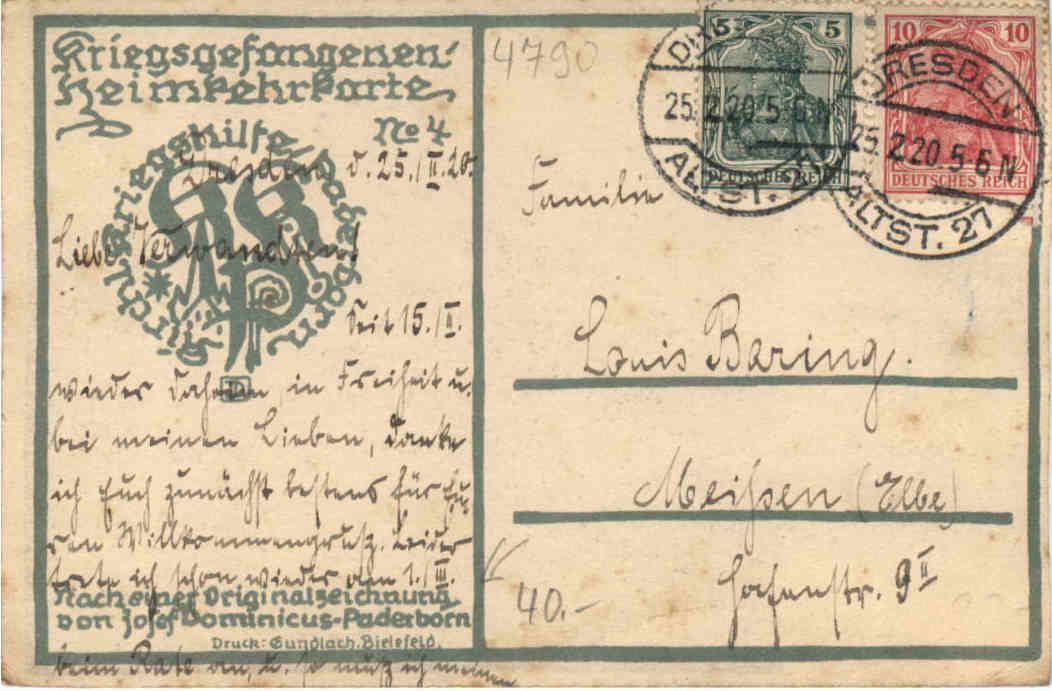 Kriegsgefangenen-
Heimkehrkarte
No 4
Kirchl. Kriegshilfe Paderborn
Dresden d. 25./II.20.
Liebe Verwandten!
Seit 15./II.
wieder daheim, in Freiheit u.
bei meinen Lieben, danke
ich Euch zunächst bestens für Eu-
ren Willkommengruß. Leider
trete ich schon wieder am 1./III.
Nach einer Originalzeichnung
von Josef Dominicus-Paderborn
Druck: Gundlach, Bielefeld.
beim Rate an, u. so muß ich meinen
4790
5 5
DEUTSCHES REICH
10 10
DEUTSCHES REICH
25.2.20.5-6N
ALTST. 27
DRESDEN
25.2.20.5-6N
ALTST. 27
Familie
Louis Bering.
Meißen (Elbe)
Hafenstr. 9 II
40.-